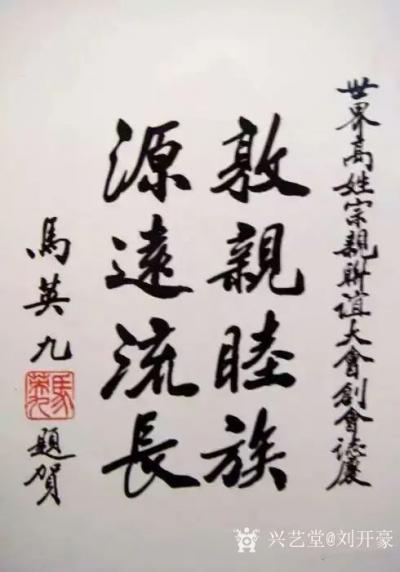 世界高姓宗親聯誼大會創會誌慶
敦親睦族
源遠流長
馬英九
題賀
兴艺堂@刘开豪